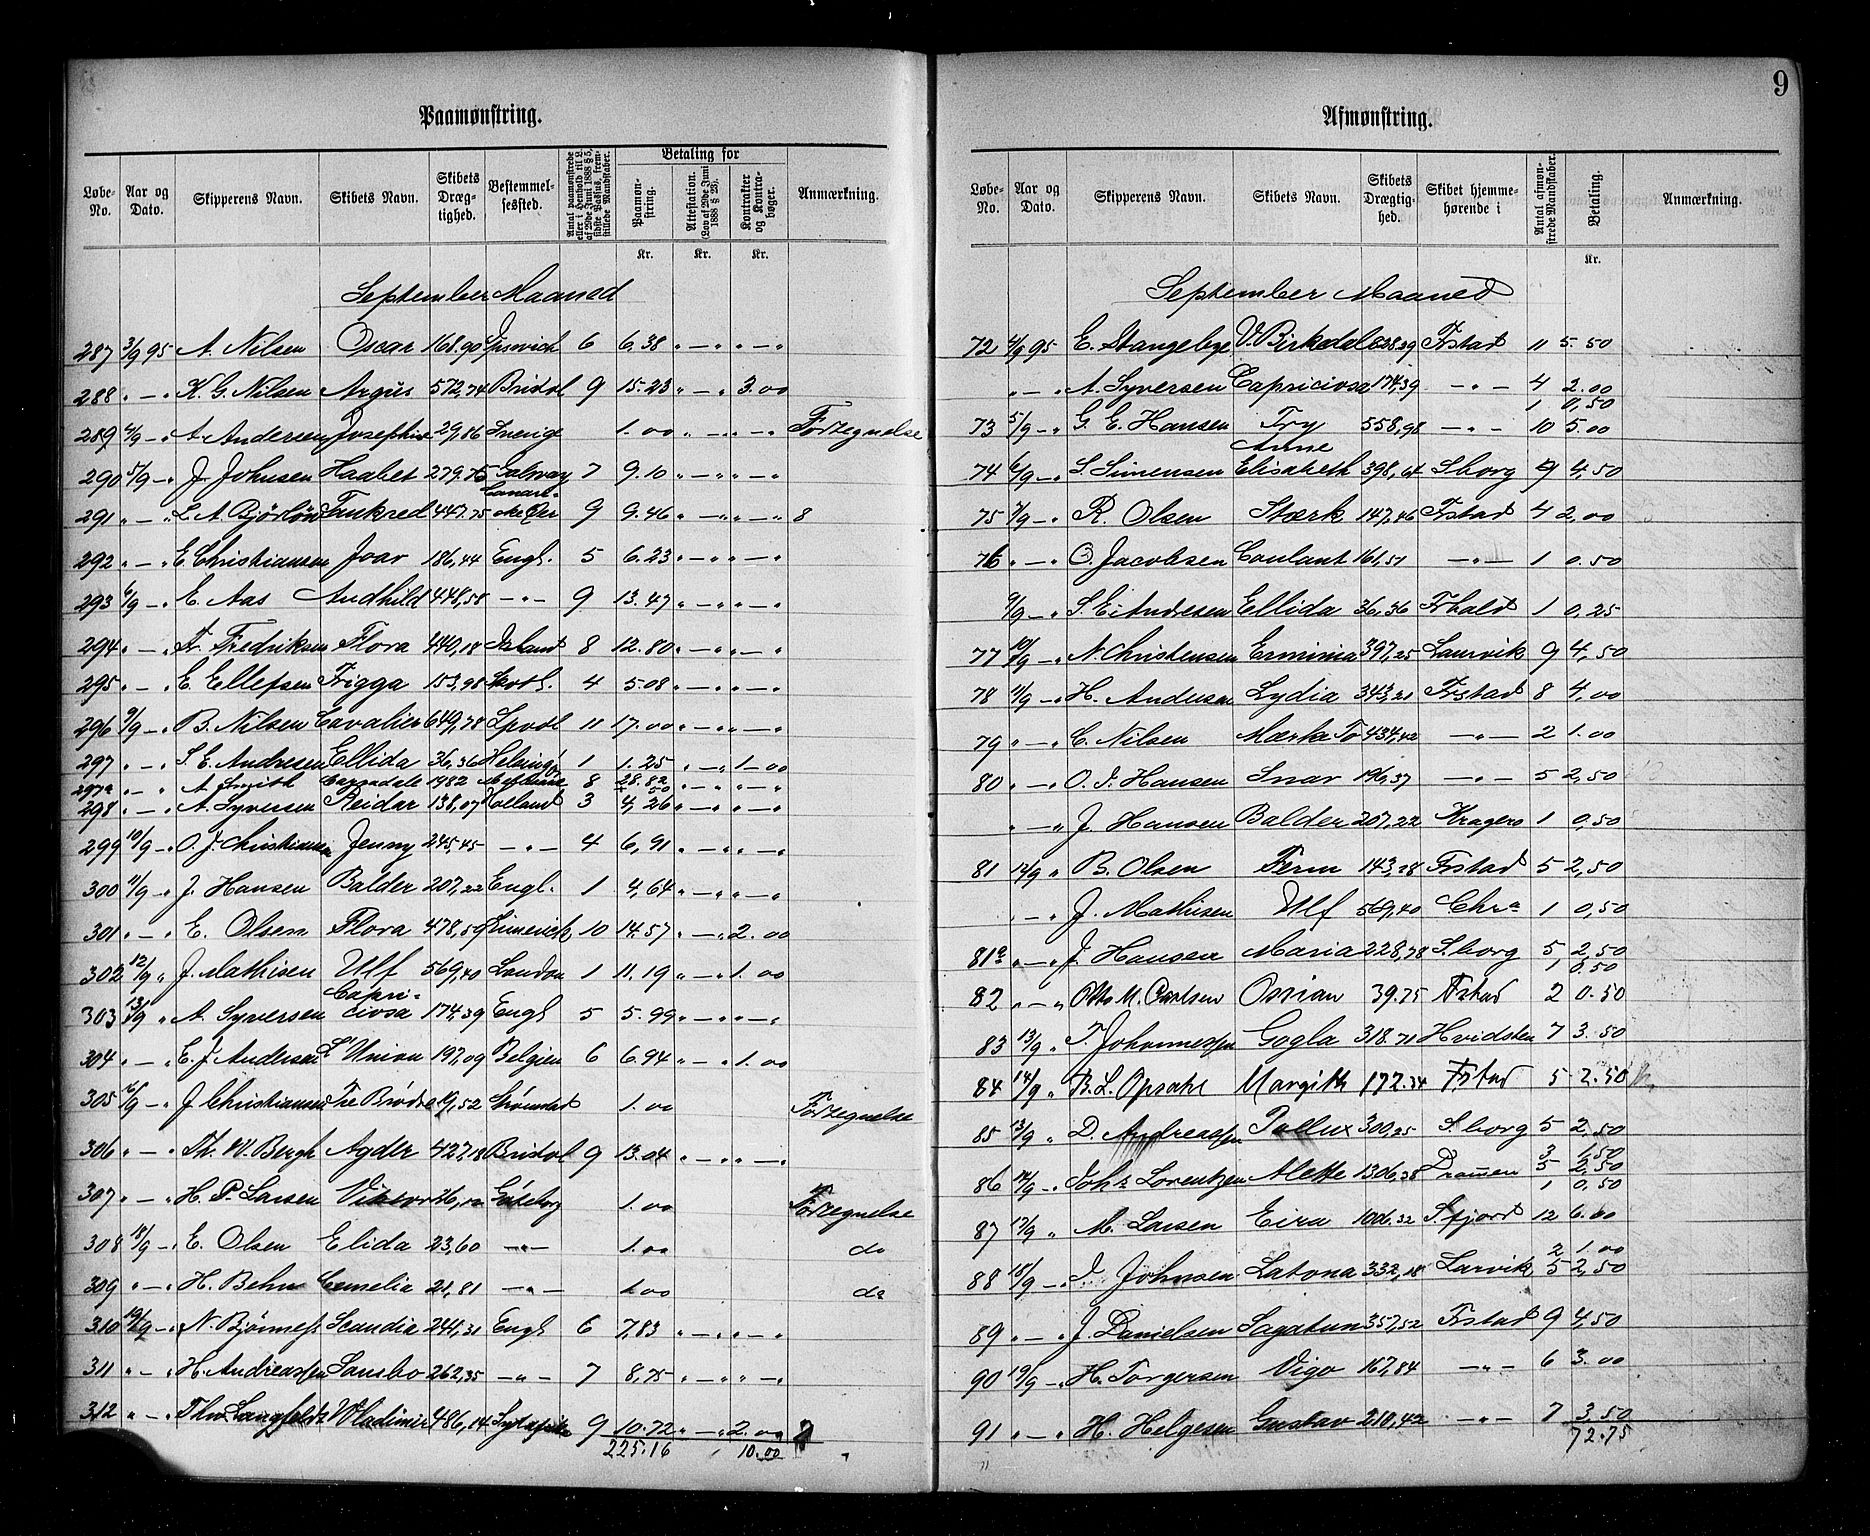 Paamønstring.
Løbe-No. Aar og Dato. Skipperens Navn. Skibets Navn. Skibets Drægtighed. Bestemmelsessted. Antal paamønstrede eller i Henhold til L. af 29de Juni 1888 § 5, sidste Passus, fremstillede Mandskaber. Betaling for Paamønstring. Attestation. (Lov af 29de Juni 1888 § 28). Kontrakter og Kontrabøger. Anmærkning.
Kr. Kr. Kr.
September Maaned
287 3/9 95 A. Nilsen Oscar 168.90 Ipswich 6 6,38 " — " " — "
288 " — " K. G. Nilsen Argus 572,74 Bristol 9 15.23 " — " 3.00
289 4/9 — " A. Andersen Josephine 29,86 Sverige 1.00 " — " " — " Fortegnelse
290 5/9 — " J. Johnsen Haabet 279.75 Galway 7 9.10 " — " " — "
291 " — " L. A. Bjørløw Tankred 447.75 9 9.46 " — " " — " 8
292 " — " E. Christiansen Joar 186,44 Engl. 5 6.23 " — " " — "
293 6/9 — " E. Aas Audhild 448,58 — " — 9 13.47 " — " " — "
294 " — " A. Fredriksen Flora 440,18 Island 8 12.80 " — " " — "
295 " — " E. Ellefsen Frigga 153,98 Skotl. 4 5.08 " — " " — "
296 9/9 — " B. Nilsen Cavalier 649,78 Lpool 11 17.00 " — " " — "
297 " — " S. E. Andresen Ellida 36,36 Helsingö 1 1.25 " — " 1.00
297a " — " A. Smith 1982 8 28.82 " — " " — "
298 " — " A. Syversen Reidar 138,07 Holland 3 4,26 " — " " — "
299 10/9 — " O. J. Christiansen Jenny 245,45 — " — 4 6,91 " — " " — "
300 11/9 — " J. Hansen Balder 207,22 Engl. 1 4,64 " — " " — "
301 " — " E. Olsen Flora 478,59 Limerick 10 14.57 " — " 2.00
302 12/9 " J. Mathisen Ulf 569,40 London 1 11.19 " — " 1.00
303 13/9 " A. Syversen Capriciosa 174,39 Engl 5 5.99 " — " " — "
304 " — " E. J. Andersen L'Union 197,09 Belgien 6 6.94 " — " 1.00
305 16/9 — " J. Christiansen Tre Brødre 19,52 Strømstad 1.00 Fortegnelse
306 " — " Th. W. Bergh Agder 427,18 Bristol 9 13.04 " — " " — "
307 " — " H. P. Larsen Victor 26,12 Göteborg 1.00 Fortegnelse
308 18/9 — " E. Olsen Elida 23,60 — " — 1.00 do
309 " — " H. Behn Camelia 21,81 — " — 1.00 do
310 19/9 — " N. Bjønness Scandia 244,31 Engl 6 7,83 " — " " — "
311 " — " H. Andreassen Sansbo 262,35 — " — 7 8,75 " — " " — "
312 " — " Thv. Langfeldt Wladimir 486,14 Sydafrika 9 10.72 " — " 2.00
225.16 10.00
9
Afmønstring.
Løbe-No. Aar og Dato. Skipperens Navn. Skibets Navn. Skibets Drægtighed. Skibet hjemmehørende i Antal afmønstrede Mandskaber. Betaling. Anmærkning.
Kr.
September Maaned
72 4/9 95 E. Stangebye V. Birkedal 628,39 Frstad 11 5.50
" — " A. Syversen Capriciosa 174,39 — " — 4 2.00
1 0,50
73 5/9 — " G. E. Hansen Try 558,98 — " — 10 5.00
74 6/9 — " S. Simensen Anne Elisabeth 398,64 Sborg 9 4,50
75 7/9 — " R. Olsen Stærk 147,46 Frstad 4 2,00
76 " — " O. Jacobsen Coulant 161,51 — " — 1 0.50
9/9 — " S. E. Andresen Ellida 36,36 Frhald 1 0,25
77 10/9 — " N. Christensen Erminia 397,25 Laurvik 9 4,50
78 11/9 — " H. Andersen Lydia 343,21 Frstad 8 4,00
79 " — " C. Nilsen Mærke To 434,42 — " — 2 1.00
80 " — " O. J. Hansen Snar 196,37 — " — 5 2,50
" — " J. Hansen Balder 207,22 Kragerø 1 0,50
81 12/9 " B. Olsen Ferm 143,28 Frstad 5 2,50
" — " J. Mathisen Ulf 569,40 Chra 1 0,50
81a " — " J. Hansen Maria 228,78 S.borg 5 2,50
1 0.50
82 " — " Otto M. Carlsen Ossian 39.75 Frstad 2 0.50
83 13/9 " T. Johannessen Gogla 318.71 Hvidsten 7 3.50
84 14/9 " B. L. Opsahl Margith 172.34 Frstad 5 2.50
85 13/9 " D. Andreassen Pollux 300,25 S.borg 5 2,50
3 1,50
86 14/9 — " Johs Lorentzen Alette 1306,38 Drammen 5 2,50
1 0,50
87 17/9 " M. Larsen Eira 1006,32 S.fjord 12 6.00
2 1.00
88 18/9 — " J. Johnsen Latona 332,18 Larvik 5 2,50
89 " — " J. Danielsen Sagatun 357,52 Frstad 9 4,50
90 19/9 — " H. Torgersen Vigo 167,84 — " — 6 3.00
91 " — " H. Helgesen Gustav 210,42 — " — 7 3,50
72.75